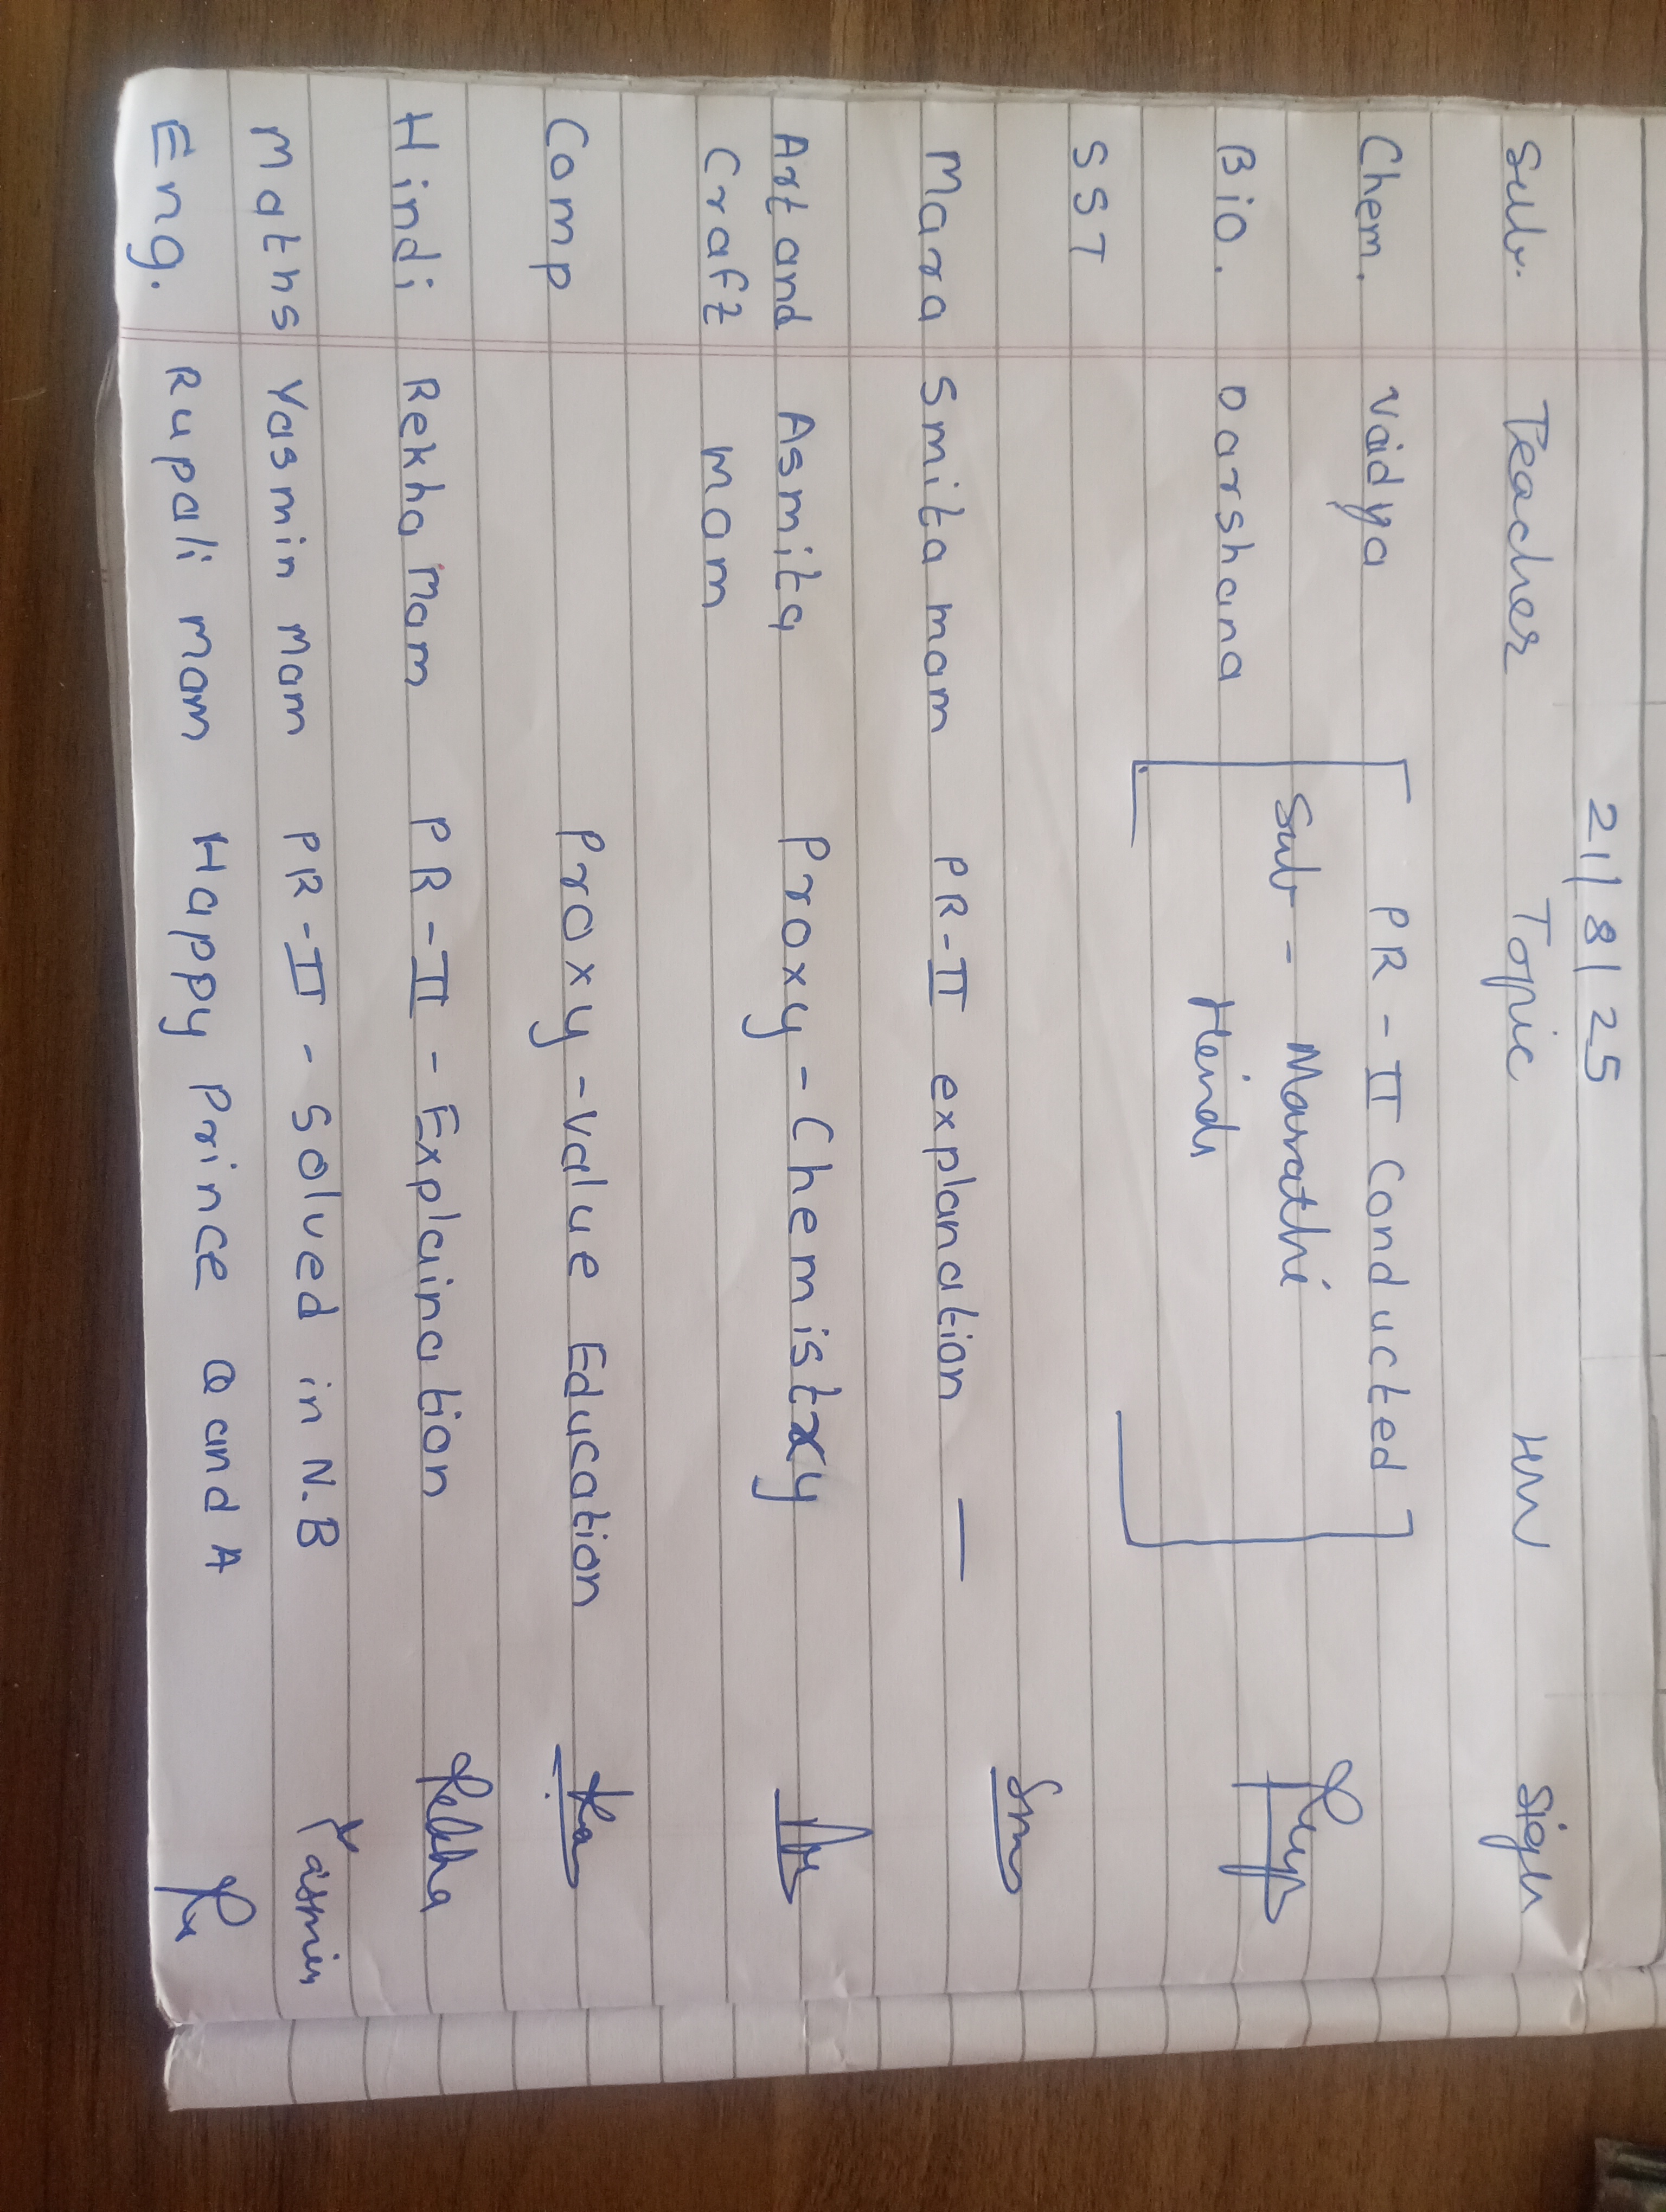 21/8/25
Sub. Teacher Topic HW Sign
Chem. Vaidya PR-II Conducted
Sub - Marathi
Bio. Darshana Hindi
SST
Mara Smita mam PR-II explanation —
Art and Asmita Proxy-Chemistry
Craft mam
Comp Proxy-Value Education
Hindi Rekha Mam PR-II - Explaination Rekha
Maths Yasmin Mam PR-II - Solved in N.B Yasmin
Eng. Rupali mam Happy Prince Q and A